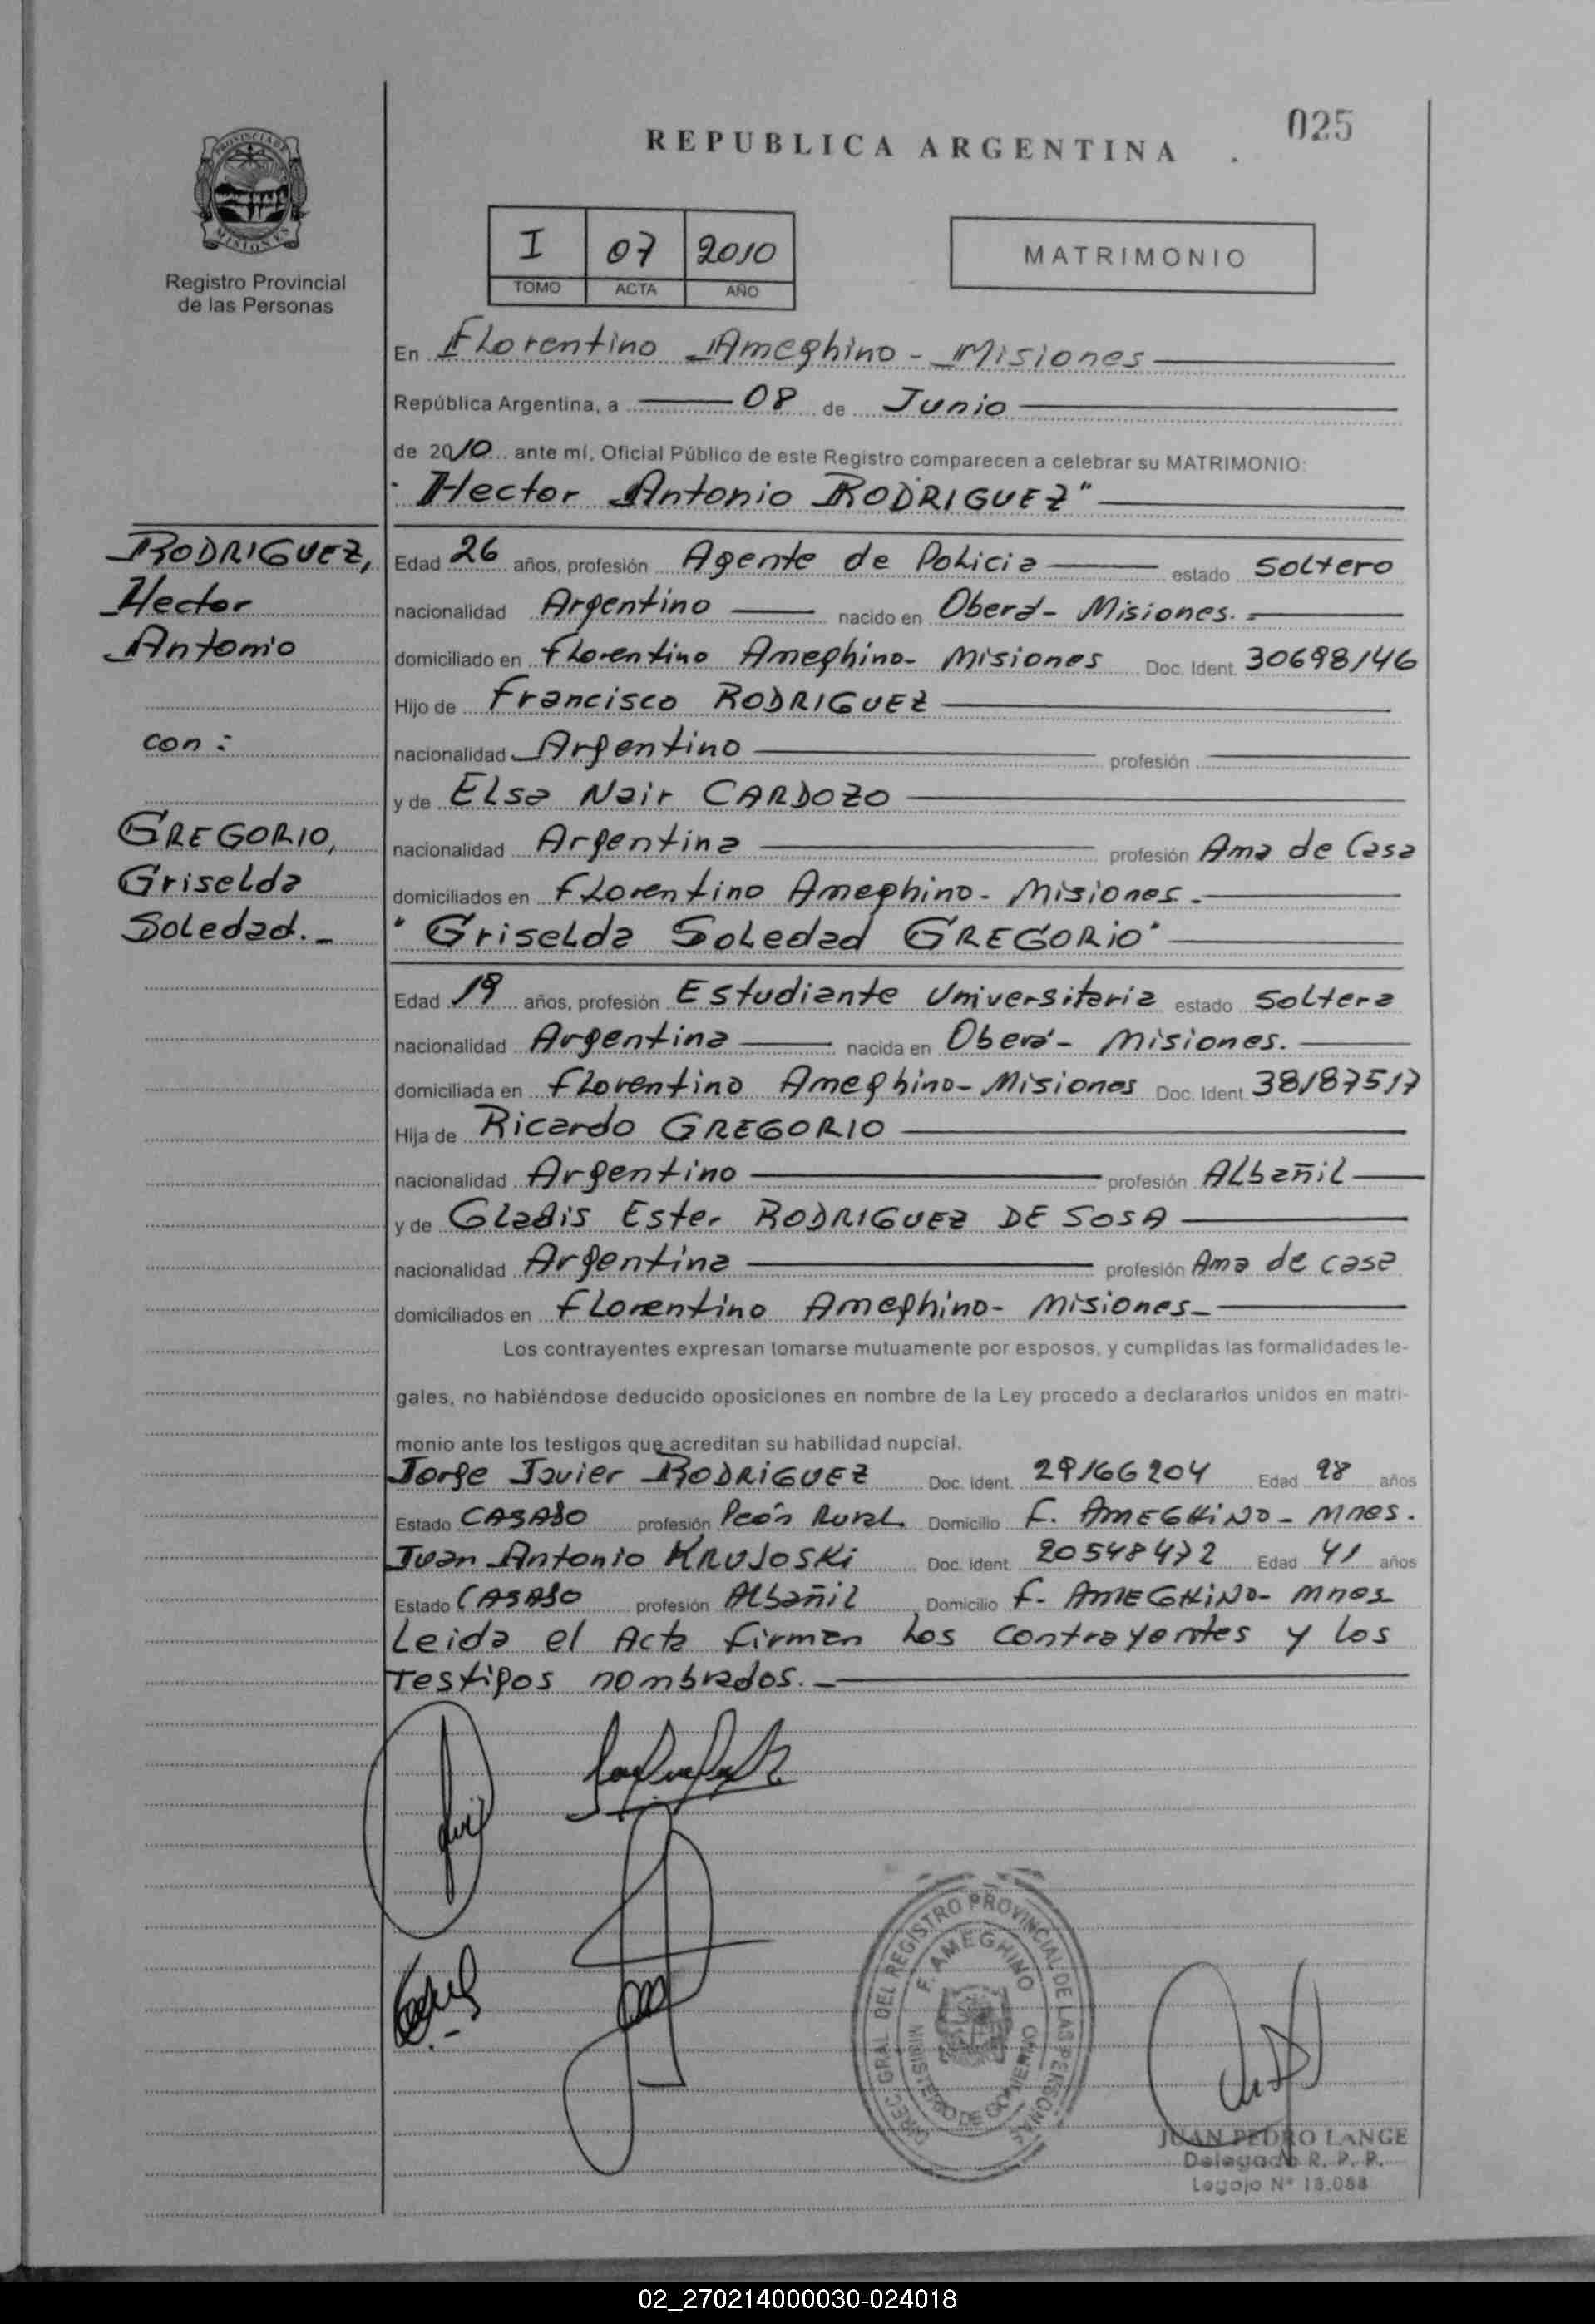 025
REPUBLICA ARGENTINA
PROVINCIA DE
MISIONES
Registro Provincial
de las Personas
I 07 2010
TOMO ACTA AÑO
MATRIMONIO
En Florentino Ameghino - Misiones
República Argentina, a 08 de Junio
de 2010 ante mí, Oficial Público de este Registro comparecen a celebrar su MATRIMONIO:
"Hector Antonio RODRIGUEZ"
RODRIGUEZ,
Hector
Antonio
con:
GREGORIO,
Griselda
Soledad.-
Edad 26 años, profesión Agente de Policia estado Soltero
nacionalidad Argentino nacido en Oberá - Misiones.
domiciliado en Florentino Ameghino - Misiones Doc. Ident. 30698146
Hijo de Francisco RODRIGUEZ
nacionalidad Argentino profesión
y de Elsa Nair CARDOZO
nacionalidad Argentina profesión Ama de Casa
domiciliados en Florentino Ameghino - Misiones.
"Griselda Soledad GREGORIO"
Edad 19 años, profesión Estudiante Universitaria estado Soltera
nacionalidad Argentina nacida en Oberá - Misiones.
domiciliada en Florentino Ameghino - Misiones Doc. Ident. 38187517
Hija de Ricardo GREGORIO
nacionalidad Argentino profesión Albañil
y de Gladis Ester RODRIGUEZ DE SOSA
nacionalidad Argentina profesión Ama de casa
domiciliados en Florentino Ameghino - Misiones
Los contrayentes expresan tomarse mutuamente por esposos, y cumplidas las formalidades le-
gales, no habiéndose deducido oposiciones en nombre de la Ley procedo a declararlos unidos en matri-
monio ante los testigos que acreditan su habilidad nupcial.
Jorge Javier RODRIGUEZ Doc. Ident. 29166204 Edad 28 años
Estado CASADO profesión Peón Rural Domicilio F. AMEGHINO - Mnes.
Juan Antonio KRUJOSKi Doc. Ident. 20548472 Edad 41 años
Estado CASADO profesión Albañil Domicilio F. AMEGHINO - Mnes
Leida el Acta firman los contrayentes y los
Testigos nombrados.-
DIREC GRAL DEL REGISTRO PROVINCIAL DE LAS PERSONAS
F. AMEGHINO
MINISTERIO DE GOBIERNO
JUAN PEDRO LANGE
Delegado R. P. P.
Legajo Nº 13.088
02_270214000030-024018